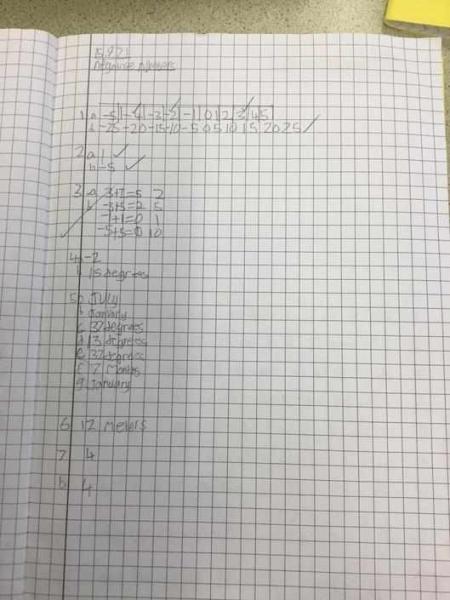 15.9.21
Negative numbers
1 a -5 -4 -3 -2 -1 0 1 2 3 4 5
b -25 -20 -15 -10 -5 0 5 10 15 20 25
2 a 1
b -5
3 a 3+2=5 2
b -3+5=2 5
-1+1=0 1
-5+5=0 10
4 -2
15 degrees
5 July
b January
c 37 degrees
d 13 degrees
e 37 degrees
f 7 Months
g January
6 12 Meters
7 4
b 4